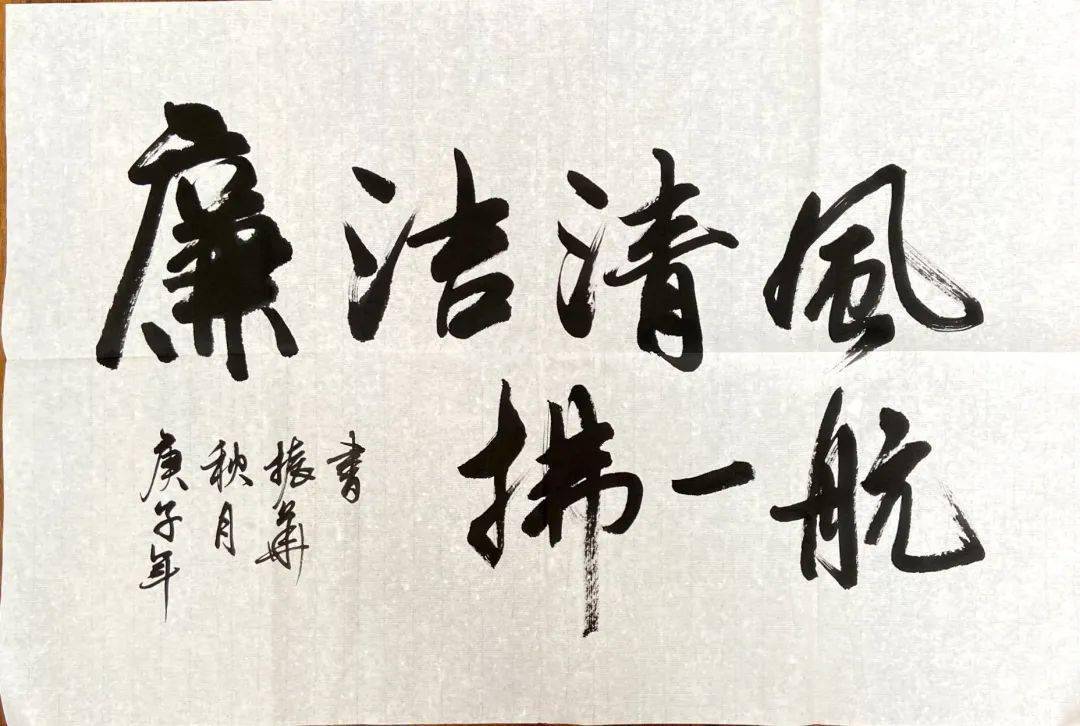 廉洁清風
拂一航
庚子年
秋月
振華
書